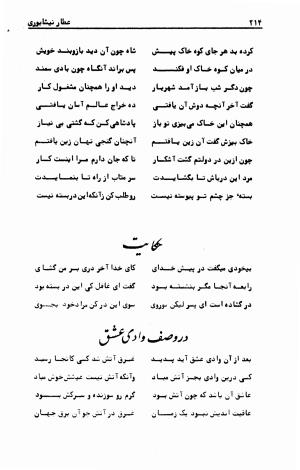 ۲۱۴ عطار نیشابوری
کرده بد هر جای کوه خاک پیــش شاه چون آن دید بازوبند خویش
در میان کوه خاک او فکنـد پس براند آنگاه چون بادی سمند
چون دگر شب باز آمد شهریار دید او را همچنان مشغول کار
گفت آخر آنچه دوش آن یافتـی ده خراج عالم آسان یافتـی
همچنان این خاک می‌بیزی تو باز پادشاهی کن که گشتی بی نیاز
خاک بیزش گفت آن زین یافتـم آنچنان گنجی نهان زین یافتـم
چون ازین در دولتم گشت آشکار تا که جان دارم مرا اینست کار
مرد این درباش تا بگشایـدت سر متاب از راه تا بنمایـدت
بسته جز چشم تو پیوسته نیست رو طلب کن زآنکه این در بسته نیست
حکایت
بیخودی میگفت در پیش خدای کای خدا آخر دری بر من گشای
رابعه آنجا مگر بنشسته بود گفت ای غافل کی این در بسته بود
در گشاده است ای پسر لیکن سوی این در کن مراد خود
در وصف وادی عشق
بعد از آن وادی عشق آید پدید غرق آتش شد کسی کانجا رسید
کس درین وادی بجز آتش مباد وآنکه آتش نیست عیشش خوش مباد
عاشق آن باشد که چون آتش بود گرم رو سوزنده و سرکش بود
عاقبت اندیش نبود یک زمان غرق در آتش چو آن برق جهان